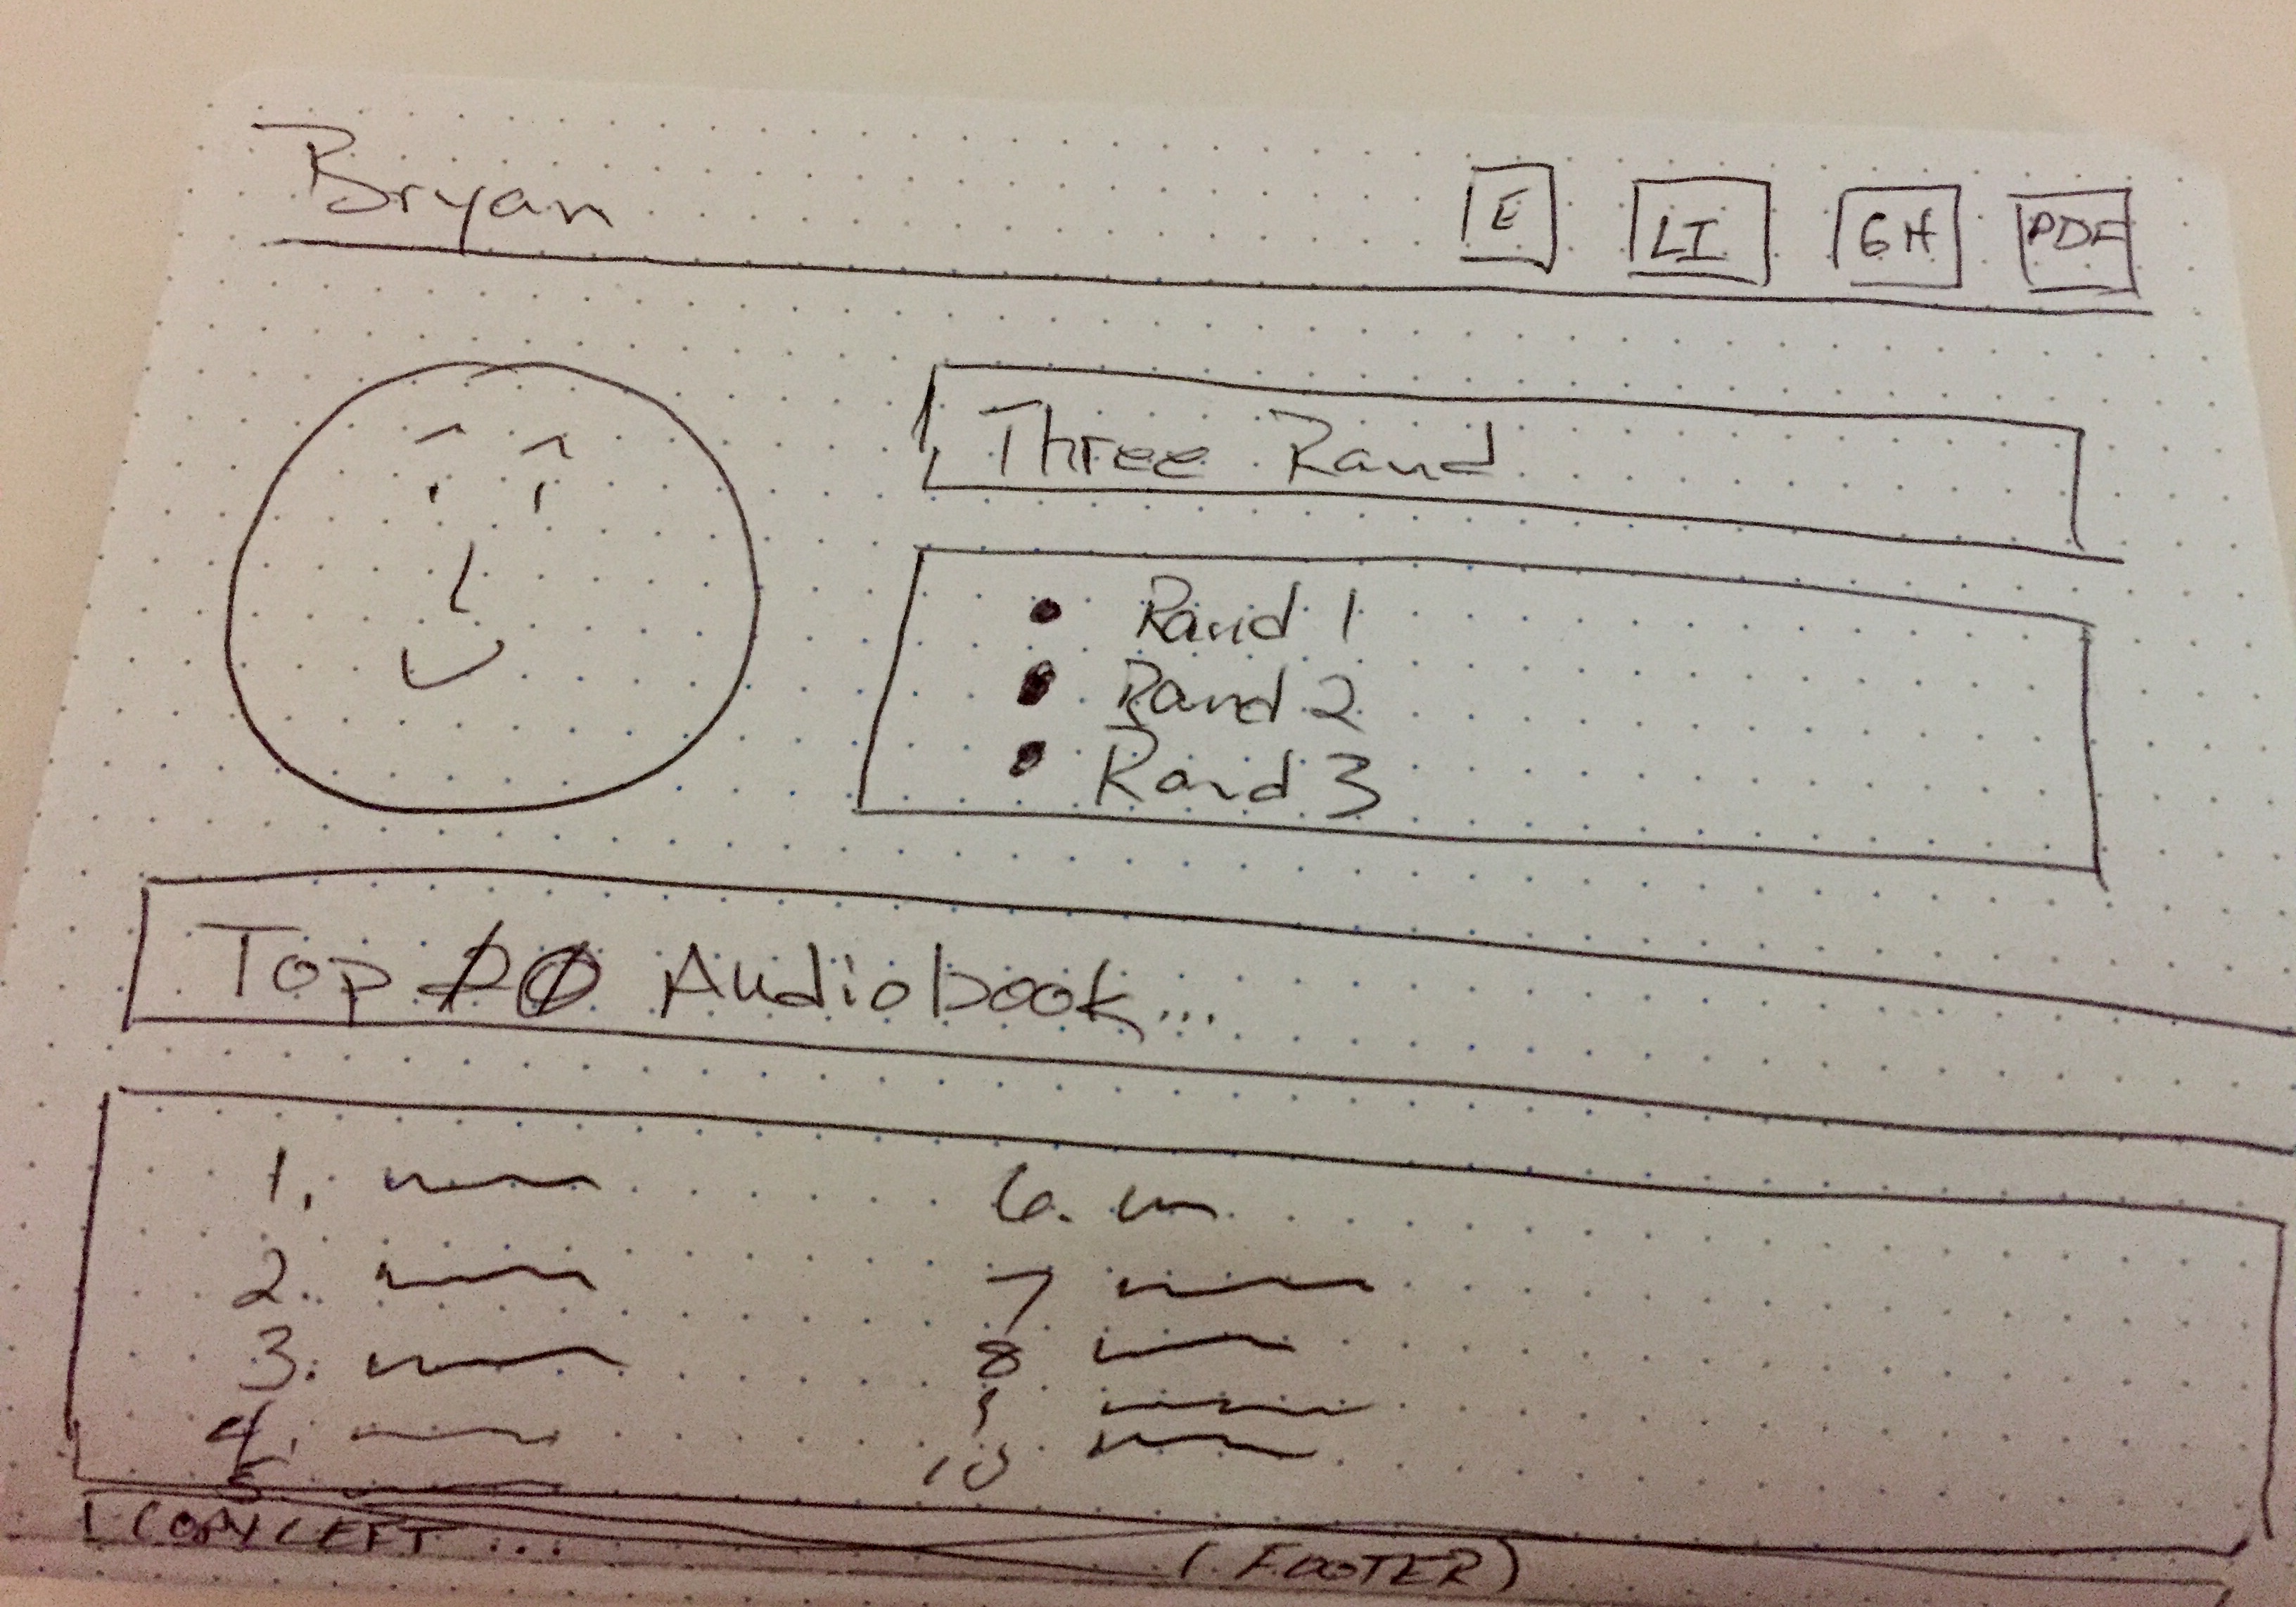 Bryan
E LI GH PDF
Three Rand
• Rand 1
• Rand 2
• Rand 3
Top Audiobook...
1. 6.
2. 7
3. 8
4. 9
5 10
COPYLEFT ... (FOOTER)